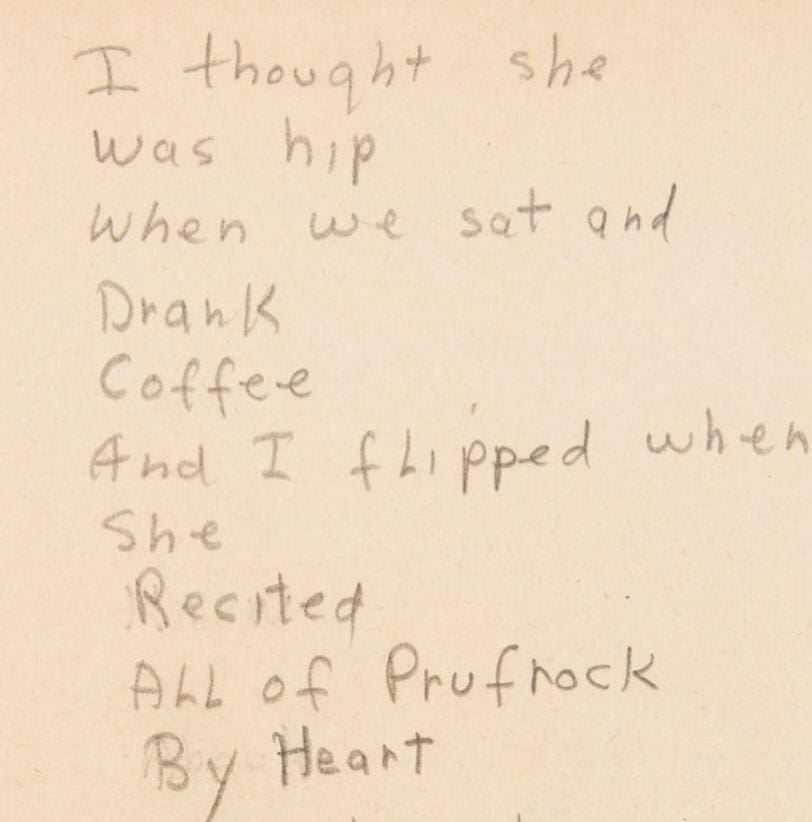 I thought she
was hip
when we sat and
Drank
Coffee
And I fLipped when
She
Recited
ALL of Prufrock
By Heart